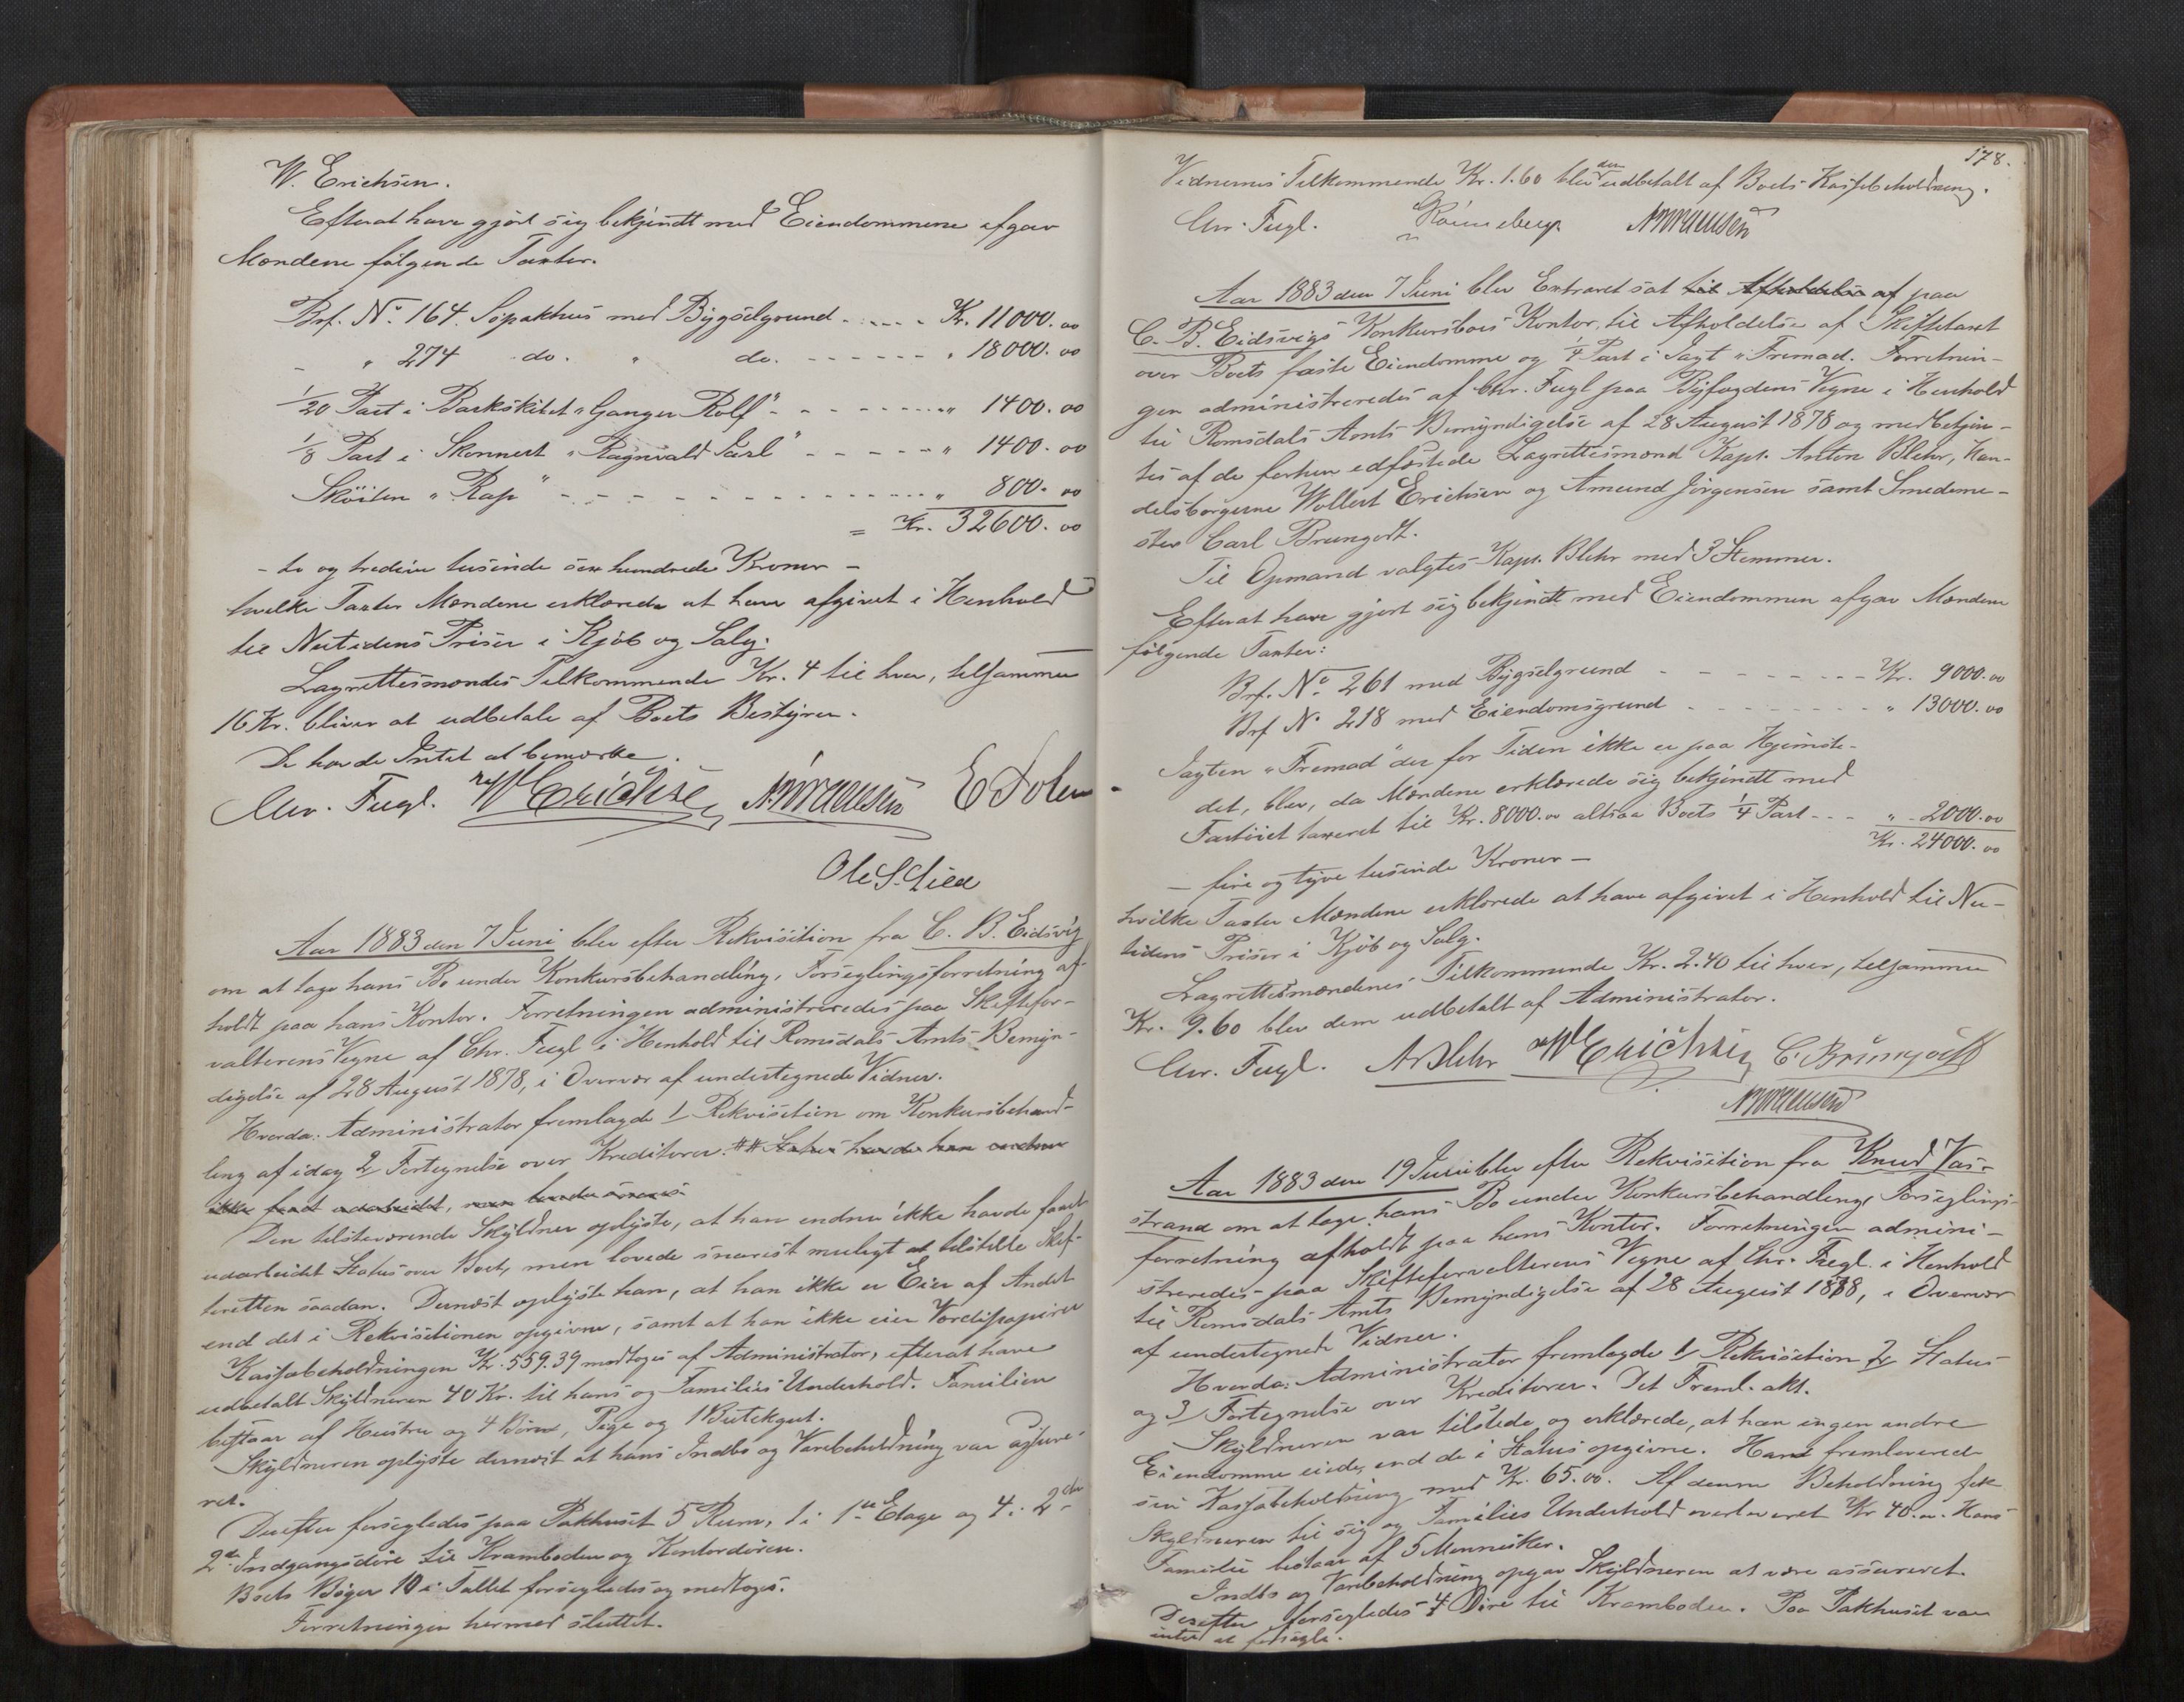 W. Erichsen.
Efterat have gjört sig bekjendt med Eiendommene afgav
Mændene fölgende Taxter.
Brf. No. 164. Söpakhus med Bygselgrund - - - - Kr. 11000.00
" 274 do. " do. - - - - - - " 18000.00
1/20 Part i Barkskibet "Ganger Rolf" - - - - - - - " 1400.00
1/8 Part i Skonnert "Ragnvald Jarl" - - - - - " 1400.00
Sköiten "Rap" - - - - - - - - - - - - - " 800.00
= Kr. 32600.00
- to og tredive tusinde sex hundrede Kroner -
hvilke Taxter Mændene erklærede at have afgivet i Henhold
til Nutidens Priser i Kjöb og Salg.
Lagrettesmændes Tilkommende Kr. 4 til hver, tilsammen
16 Kr. bliver at udbetale af Boets Bestyrer.
De havde Intet at bemærke.
Chr. Fugl. W Erichsen E Solem
Ole S. Lied
Aar 1883 den 7 Juni blev efter Rekvisition fra C. B. Eidsvig
om at tage hans Bo under Konkursbehandling, Forseglingsforretning af-
holdt paa hans Kontor. Forretningen administreredes paa Skiftefor-
valterens Vegne af Chr. Fugl i Henhold til Romsdals Amts Bemyn-
digelse af 28 August 1878, i Overvær af undertegnede Vidner.
Hvorda: Administrator fremlagde 1/ Rekvisition om Konkursbehand-
ling af idag 2/ Fortegnelse over Kreditorer. Status havde han endnu
ikke faaet udarbeidet, men lovede snarest
Den tilstedeværende Skyldner oplyste, at han endnu ikke havde faaet
udarbeidet Status over Boet, men lovede snarest muligt at tilstille Skif-
teretten saadan. Dernæst oplyste han, at han ikke er Eier af Andet
end det i Rekvisitionen opgivne, samt at han ikke eier Værdipapirer
Kassabeholdningen Kr. 559.39 modtoges af Administrator, efterat have
udbetalt Skyldneren 40 Kr. til hans og Familiens Underhold. Familien
bestaar af Hustru og 4 Börn, Pige og 1 Butikgut.
Skyldneren oplyste dernæst at hans Indbo og Varebeholdning var assure-
ret.
Derefter forsegledes paa Pakhuset 5 Rum, 1 i 1ste Etage og 4 i 2den
2de Indgangsdöre til Kramboden og Kontordören.
Boets Böger 10 i Tallet forsegledes og medtoges.
Forretningen hermed sluttet.
178.
Vidnernes Tilkommende Kr. 1.60 blev dem udbetalt af Boets Kassebeholdning.
Chr. Fugl. Rönneberg
Aar 1883 den 7 Juni blev Extraret sat til Afholdelse af paa
C. B. Eidsvigs Konkursboes Kontor, til Afholdelse af Skiftetaxt
over Boets faste Eiendomme og 1/4 Part i Jagt "Fremad. Forretnin-
gen administreredes af Chr. Fugl paa Byfogdens Vegne i Henhold
til Romsdals Amts Bemyndigelse af 28 August 1878 og medbetjen-
tes af de forhen edfæstede Lagrettesmænd Kapt. Anton Blehr, Han-
delsborgerne Wollert Erichsen og Amund Jörgensen samt Smedeme-
ster Carl Brungodt.
Til Opmand valgtes Kapt. Blehr med 3 Stemmer.
Efterat have gjort sig bekjendt med Eiendommen afgav Mændene
fölgende Taxter:
Brf. No. 261 med Bygselgrund - - - - - - - - Kr. 9000.00
Brf No 218 med Eiendomsgrund - - - - - - - " 13000.00
Jagten "Fremad" der for Tiden ikke er paa Hjemste-
det, blev, da Mændene erklærede sig bekjendt med
Fartöiet taxeret til Kr. 8000.00 altsaa Boets 1/4 Part - - - " 2000.00
Kr. 24000.00
- fire og tyve tusinde Kroner -
hvilke Taxter Mændene erklærede at have afgivet i Henhold til Nu-
tidens Priser i Kjöb og Salg.
Lagrettesmændenes Tilkommende Kr. 2.40 til hver, tilsammen
Kr. 9.60 blev dem udbetalt af Administrator.
Chr. Fugl. A Blehr W Erichsen C. Brungodt
Aar 1883 den 19 Juni blev efter Rekvisition fra Knud Vas-
strand om at tage hans Bo under Konkursbehandling, Forseglings-
forretning afholdt paa hans Kontor. Forretningen admini-
streredes paa Skifteforvalterens Vegne af Chr. Fugl i Henhold
til Romsdals Amts Bemyndigelse af 28 August 1878, i Overvær
af undertegnede Vidner.
Hvorda: Administrator fremlagde 1/ Rekvisition 2/ Status
og 3/ Fortegnelse over Kreditorer. Det Freml. akt.
Skyldneren var tilstede og erklærede, at han ingen andre
Eiendomme eiede, end de i Status opgivne. Han fremleverede
sin Kassabeholdning med Kr. 65.00. Af denne Beholdning fik
Skyldneren til sig og Families Underhold overleveret Kr 40.00. Hans
Familie bestaar af 5 Mennesker.
Indbo og Varebeholdning opgav Skyldneren at være assureret.
Derefter forsegledes 4 Döre til Kramboden. Paa Pakhuset var
intet at forsegle.